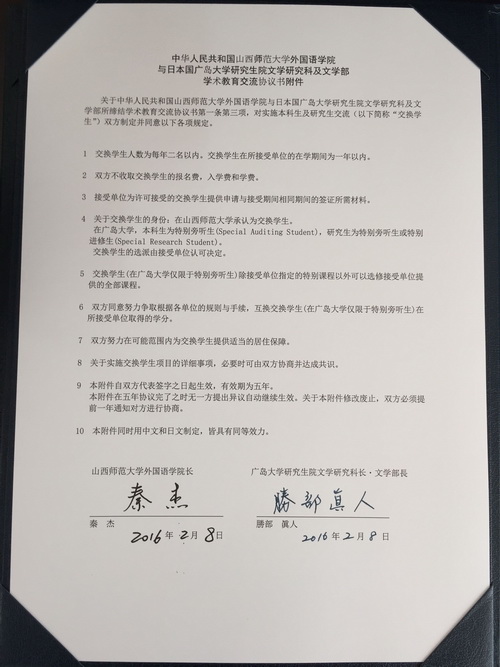 中华人民共和国山西师范大学外国语学院
与日本国广岛大学研究生院文学研究科及文学部
学术教育交流协议书附件
关于中华人民共和国山西师范大学外国语学院与日本国广岛大学研究生院文学研究科及文
学部所缔结学术教育交流协议书第一条第三项，对实施本科生及研究生交流（以下简称“交换学
生”）双方制定并同意以下各项规定。
1 交换学生人数为每年二名以内。交换学生在所接受单位的在学期间为一年以内。
2 双方不收取交换学生的报名费，入学费和学费。
3 接受单位为许可接受的交换学生提供申请与接受期间相同期间的签证所需材料。
4 关于交换学生的身份：在山西师范大学承认为交换学生。
在广岛大学，本科生为特别旁听生(Special Auditing Student)，研究生为特别旁听生或特别
进修生(Special Research Student)。
交换学生的选派由接受单位认可决定。
5 交换学生(在广岛大学仅限于特别旁听生)除接受单位指定的特别课程以外可以选修接受单位提
供的全部课程。
6 双方同意努力争取根据各单位的规则与手续，互换交换学生(在广岛大学仅限于特别旁听生)在
所接受单位取得的学分。
7 双方努力在可能范围内为交换学生提供适当的居住保障。
8 关于实施交换学生项目的详细事项，必要时可由双方协商并达成共识。
9 本附件自双方代表签字之日起生效，有效期为五年。
本附件在五年协议完了之时无一方提出异议自动继续生效。关于本附件修改废止，双方必须提
前一年通知对方进行协商。
10 本附件同时用中文和日文制定，皆具有同等效力。
山西师范大学外国语学院长 广岛大学研究生院文学研究科长・文学部長
秦杰 勝部眞人
秦 杰 勝部 眞人
2016 年 2 月 8 日 2016 年 2 月 8 日